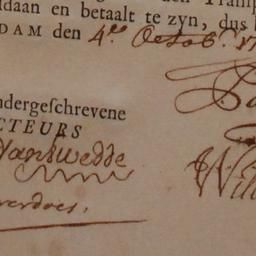 daan en betaalt te zyn, dus
DAM den 4.de Octob.r 17
ndergeſchrevene
CTEURS
Vanſwedde
Will